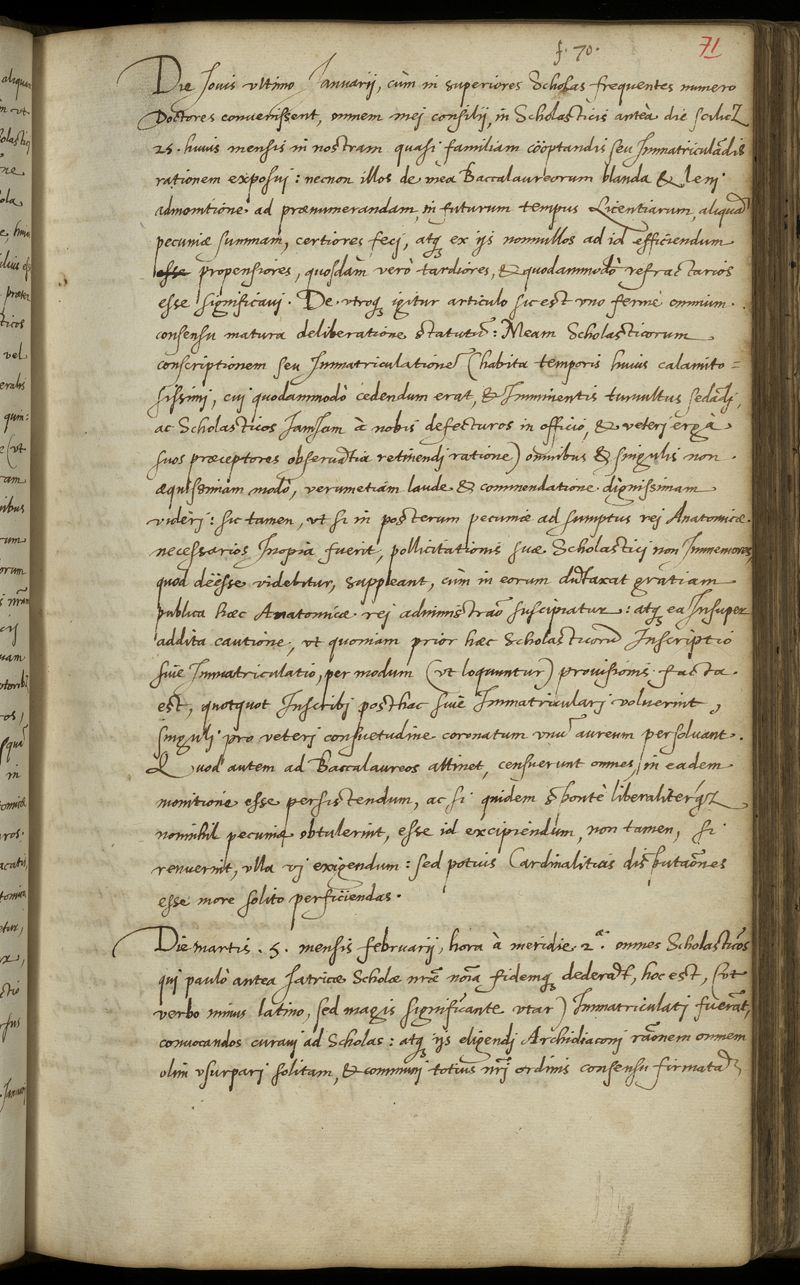 f. 70.
71
Die Jouis vltimo Januarij, cùm in superiores Scholas frequentes numero
Doctores conuenissent, omnem mej consilij, in Scholasticis anteà die scilicz
25. huius mensis in nostram quasi familiam cöoptandis seu Immatriculādis
rationem exposuj: necnon illos de mea Baccalaureorum blanda & lenj
admonitione ad prænumerandam, in futurum tempus Licentiarum, aliquā
pecuniæ summam, certiores fecj, atq; ex ijs nonnullos ad id efficiendum
esse propensiores, quosdam verò tardiores, & quodammodò refractarios
esse significauj. De vtroq; igitur articulo sic est vno fermè omnium
consensu matura deliberatione statutū: Meam Scholasticorum
conscriptionem seu Immatriculationē (habita temporis huius calamito=
sissimj, cuj quodammodò cedendum erat, & Imminentis tumultus sedādj,
ac Scholasticos JamJam à nobis defecturos in officio, & veterj ergà
suos præceptores obseruātia retinendj ratione) omnibus & singulis non
æquissimam modò, verumetiam laude & commendatione dignissimam
viderj: sic tamen, vt si in posterum pecuniæ ad sumptus rej Anatomicæ
necessarios Inopia fuerit, pollicitationis suæ Scholasticj non Immemores,
quod dëesse videbitur, suppleant, cùm in eorum dūtaxat gratiam
publica hæc Anatomicæ rej administrāo suscipiatur: atq; ea Insuper
addita cautione, vt quoniam prior hæc Scholasticorū Inscriptio
siue Immatriculatio, per modum (vt loquuntur) prouisionis facta
est, quotquot Inscribj posthac siue Immatricularj voluerint,
singulj pro veterj consuetudine coronatum vnū aureum persoluant.
Quod autem ad Baccalaureos attinet, censuerunt omnes, in eadem
monitione esse persistendum, ac si quidem spontè liberaliterq́z
nonnihil pecuniæ obtulerint, esse id excipiendum, non tamen, si
renuerint, vlla vj exigendum: sed potius Cardinalitias disputāones
esse more solito perficiendas.
Die martis .5. mensis februarij, hora à meridie 2ª. omnes Scholasticos
qui paulò antea Iatricæ Scholæ nr̄æ nōia fidemq; dederāt, hoc est, (vt
verbo minus latino, sed magis significante vtar) Immatriculatj fuerāt,
conuocandos curauj ad Scholas: atq; ijs eligendj Archidiaconj rāonem omnem
olim vsurparj solitam, & communj totius nr̄j ordinis consensu firmatā